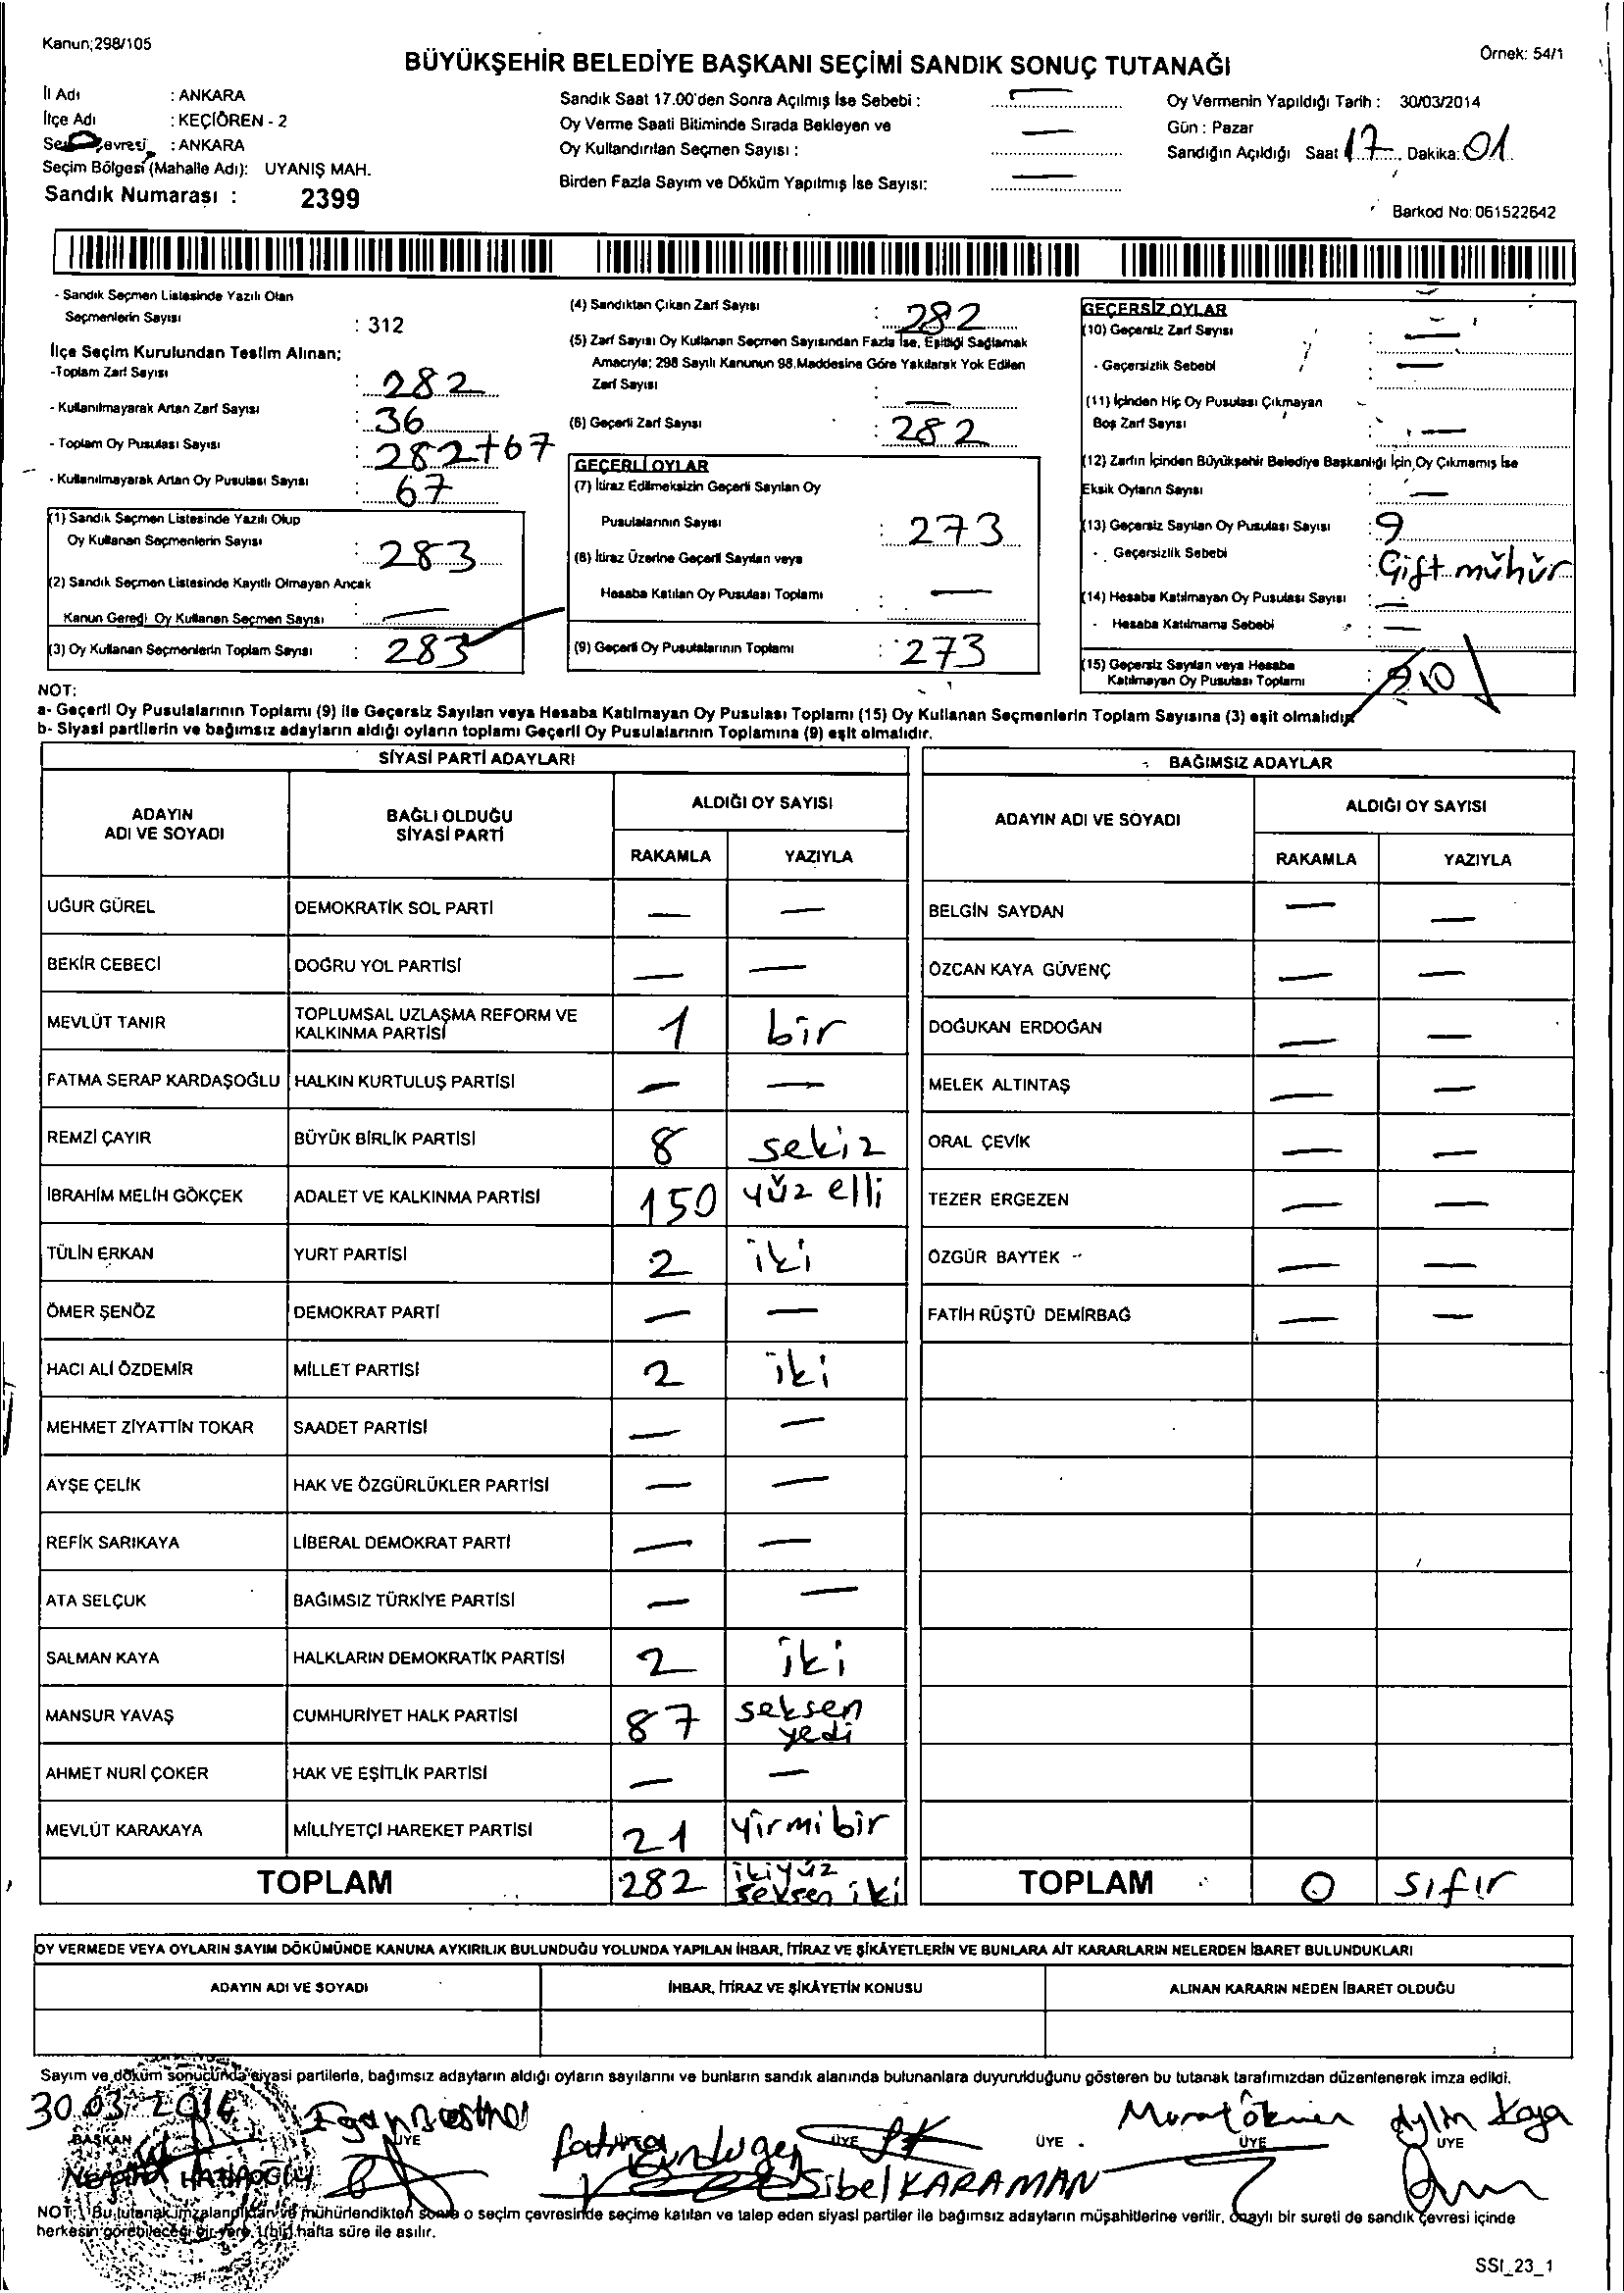 Kanun;298/105
Örnek: 54/1
BÜYÜKŞEHİR BELEDİYE BAŞKANI SEÇİMİ SANDIK SONUÇ TUTANAĞI
İl Adı : ANKARA
İlçe Adı : KEÇİÖREN - 2
: ANKARA
Seçim Bölgesi (Mahalle Adı): UYANIŞ MAH.
Sandık Numarası : 2399
Sandık Saat 17.00'den Sonra Açılmış İse Sebebi : —
Oy Verme Saati Bitiminde Sırada Bekleyen ve
Oy Kullandırılan Seçmen Sayısı : —
Birden Fazla Sayım ve Döküm Yapılmış İse Sayısı: —
Oy Vermenin Yapıldığı Tarih : 30/03/2014
Gün : Pazar
Sandığın Açıldığı Saat 17 Dakika: 01
Barkod No: 061522642
- Sandık Seçmen Listesinde Yazılı Olan
Seçmenlerin Sayısı : 312
İlçe Seçim Kurulundan Teslim Alınan;
-Toplam Zarf Sayısı : 282
- Kullanılmayarak Artan Zarf Sayısı : 36
- Toplam Oy Pusulası Sayısı : 282+67
- Kullanılmayarak Artan Oy Pusulası Sayısı : 67
(1) Sandık Seçmen Listesinde Yazılı Olup
Oy Kullanan Seçmenlerin Sayısı : 283
(2) Sandık Seçmen Listesinde Kayıtlı Olmayan Ancak
Kanun Gereği Oy Kullanan Seçmen Sayısı : —
(3) Oy Kullanan Seçmenlerin Toplam Sayısı : 283
(4) Sandıktan Çıkan Zarf Sayısı : 282
(5) Zarf Sayısı Oy Kullanan Seçmen Sayısından Fazla İse, Eşitliği Sağlamak
Amacıyla; 298 Sayılı Kanunun 98.Maddesine Göre Yakılarak Yok Edilen
Zarf Sayısı : —
(6) Geçerli Zarf Sayısı : 282
GEÇERLİ OYLAR
(7) İtiraz Edilmeksizin Geçerli Sayılan Oy
Pusulalarının Sayısı : 273
(8) İtiraz Üzerine Geçerli Sayılan veya
Hesaba Katılan Oy Pusulası Toplamı : —
(9) Geçerli Oy Pusulalarının Toplamı : 273
GEÇERSİZ OYLAR
(10) Geçersiz Zarf Sayısı : —
- Geçersizlik Sebebi : —
(11) İçinden Hiç Oy Pusulası Çıkmayan
Boş Zarf Sayısı : —
(12) Zarfın İçinden Büyükşehir Belediye Başkanlığı İçin Oy Çıkmamış İse
Eksik Oyların Sayısı : —
(13) Geçersiz Sayılan Oy Pusulası Sayısı : 9
- Geçersizlik Sebebi : Çift mühür
(14) Hesaba Katılmayan Oy Pusulası Sayısı : —
- Hesaba Katılmama Sebebi : —
(15) Geçersiz Sayılan veya Hesaba
Katılmayan Oy Pusulası Toplamı : 10
NOT:
a- Geçerli Oy Pusulalarının Toplamı (9) ile Geçersiz Sayılan veya Hesaba Katılmayan Oy Pusulası Toplamı (15) Oy Kullanan Seçmenlerin Toplam Sayısına (3) eşit olmalıdır
b- Siyasi partilerin ve bağımsız adayların aldığı oyların toplamı Geçerli Oy Pusulalarının Toplamına (9) eşit olmalıdır.
SİYASİ PARTİ ADAYLARI
ADAYIN ADI VE SOYADI
BAĞLI OLDUĞU SİYASİ PARTİ
ALDIĞI OY SAYISI
RAKAMLA YAZIYLA
UĞUR GÜREL DEMOKRATİK SOL PARTİ — —
BEKİR CEBECİ DOĞRU YOL PARTİSİ — —
MEVLÜT TANIR TOPLUMSAL UZLAŞMA REFORM VE KALKINMA PARTİSİ 1 bir
FATMA SERAP KARDAŞOĞLU HALKIN KURTULUŞ PARTİSİ — —
REMZİ ÇAYIR BÜYÜK BİRLİK PARTİSİ 8 sekiz
İBRAHİM MELİH GÖKÇEK ADALET VE KALKINMA PARTİSİ 150 yüz elli
TÜLİN ERKAN YURT PARTİSİ 2 iki
ÖMER ŞENÖZ DEMOKRAT PARTİ — —
HACI ALİ ÖZDEMİR MİLLET PARTİSİ 2 iki
MEHMET ZİYATTİN TOKAR SAADET PARTİSİ — —
AYŞE ÇELİK HAK VE ÖZGÜRLÜKLER PARTİSİ — —
REFİK SARIKAYA LİBERAL DEMOKRAT PARTİ — —
ATA SELÇUK BAĞIMSIZ TÜRKİYE PARTİSİ — —
SALMAN KAYA HALKLARIN DEMOKRATİK PARTİSİ 2 iki
MANSUR YAVAŞ CUMHURİYET HALK PARTİSİ 87 seksen yedi
AHMET NURİ ÇOKER HAK VE EŞİTLİK PARTİSİ — —
MEVLÜT KARAKAYA MİLLİYETÇİ HAREKET PARTİSİ 21 yirmi bir
TOPLAM 282 ikiyüz seksen iki
BAĞIMSIZ ADAYLAR
ADAYIN ADI VE SOYADI
ALDIĞI OY SAYISI
RAKAMLA YAZIYLA
BELGİN SAYDAN — —
ÖZCAN KAYA GÜVENÇ — —
DOĞUKAN ERDOĞAN — —
MELEK ALTINTAŞ — —
ORAL ÇEVİK — —
TEZER ERGEZEN — —
ÖZGÜR BAYTEK — —
FATİH RÜŞTÜ DEMİRBAĞ — —
TOPLAM 0 sıfır
OY VERMEDE VEYA OYLARIN SAYIM DÖKÜMÜNDE KANUNA AYKIRILIK BULUNDUĞU YOLUNDA YAPILAN İHBAR, İTİRAZ VE ŞİKÂYETLERİN VE BUNLARA AİT KARARLARIN NELERDEN İBARET BULUNDUKLARI
ADAYIN ADI VE SOYADI
İHBAR, İTİRAZ VE ŞİKÂYETİN KONUSU
ALINAN KARARIN NEDEN İBARET OLDUĞU
Sayım ve döküm sonucunda siyasi partilerle, bağımsız adayların aldığı oyların sayılarını ve bunların sandık alanında bulunanlara duyurulduğunu gösteren bu tutanak tarafımızdan düzenlenerek imza edildi.
30.03.2014
BAŞKAN ÜYE ÜYE ÜYE ÜYE ÜYE
Fatma
Murat Ökmen
Aylin Kaya
Sibel KARAMAN
NOT : Bu tutanak imzalandıktan ve mühürlendikten sonra o seçim çevresinde seçime katılan ve talep eden siyasi partiler ile bağımsız adayların müşahitlerine verilir, onaylı bir sureti de sandık çevresi içinde
herkesin görebileceği bir yere, 1(bir) hafta süre ile asılır.
SSI_23_1